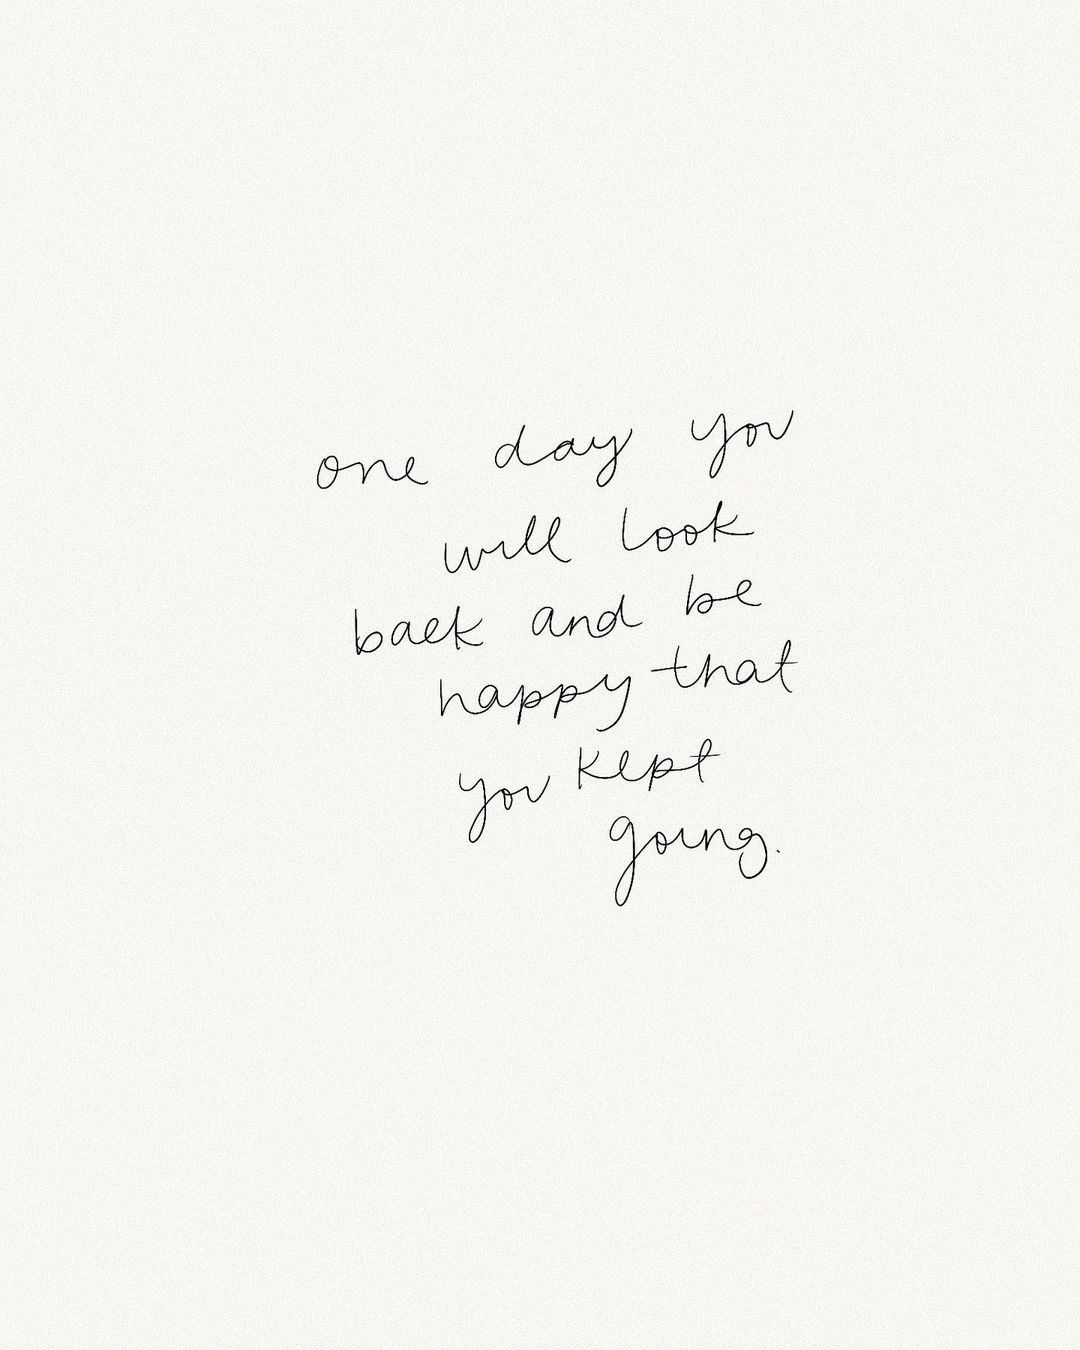 one day you
will look
back and be
happy that
you kept
going.